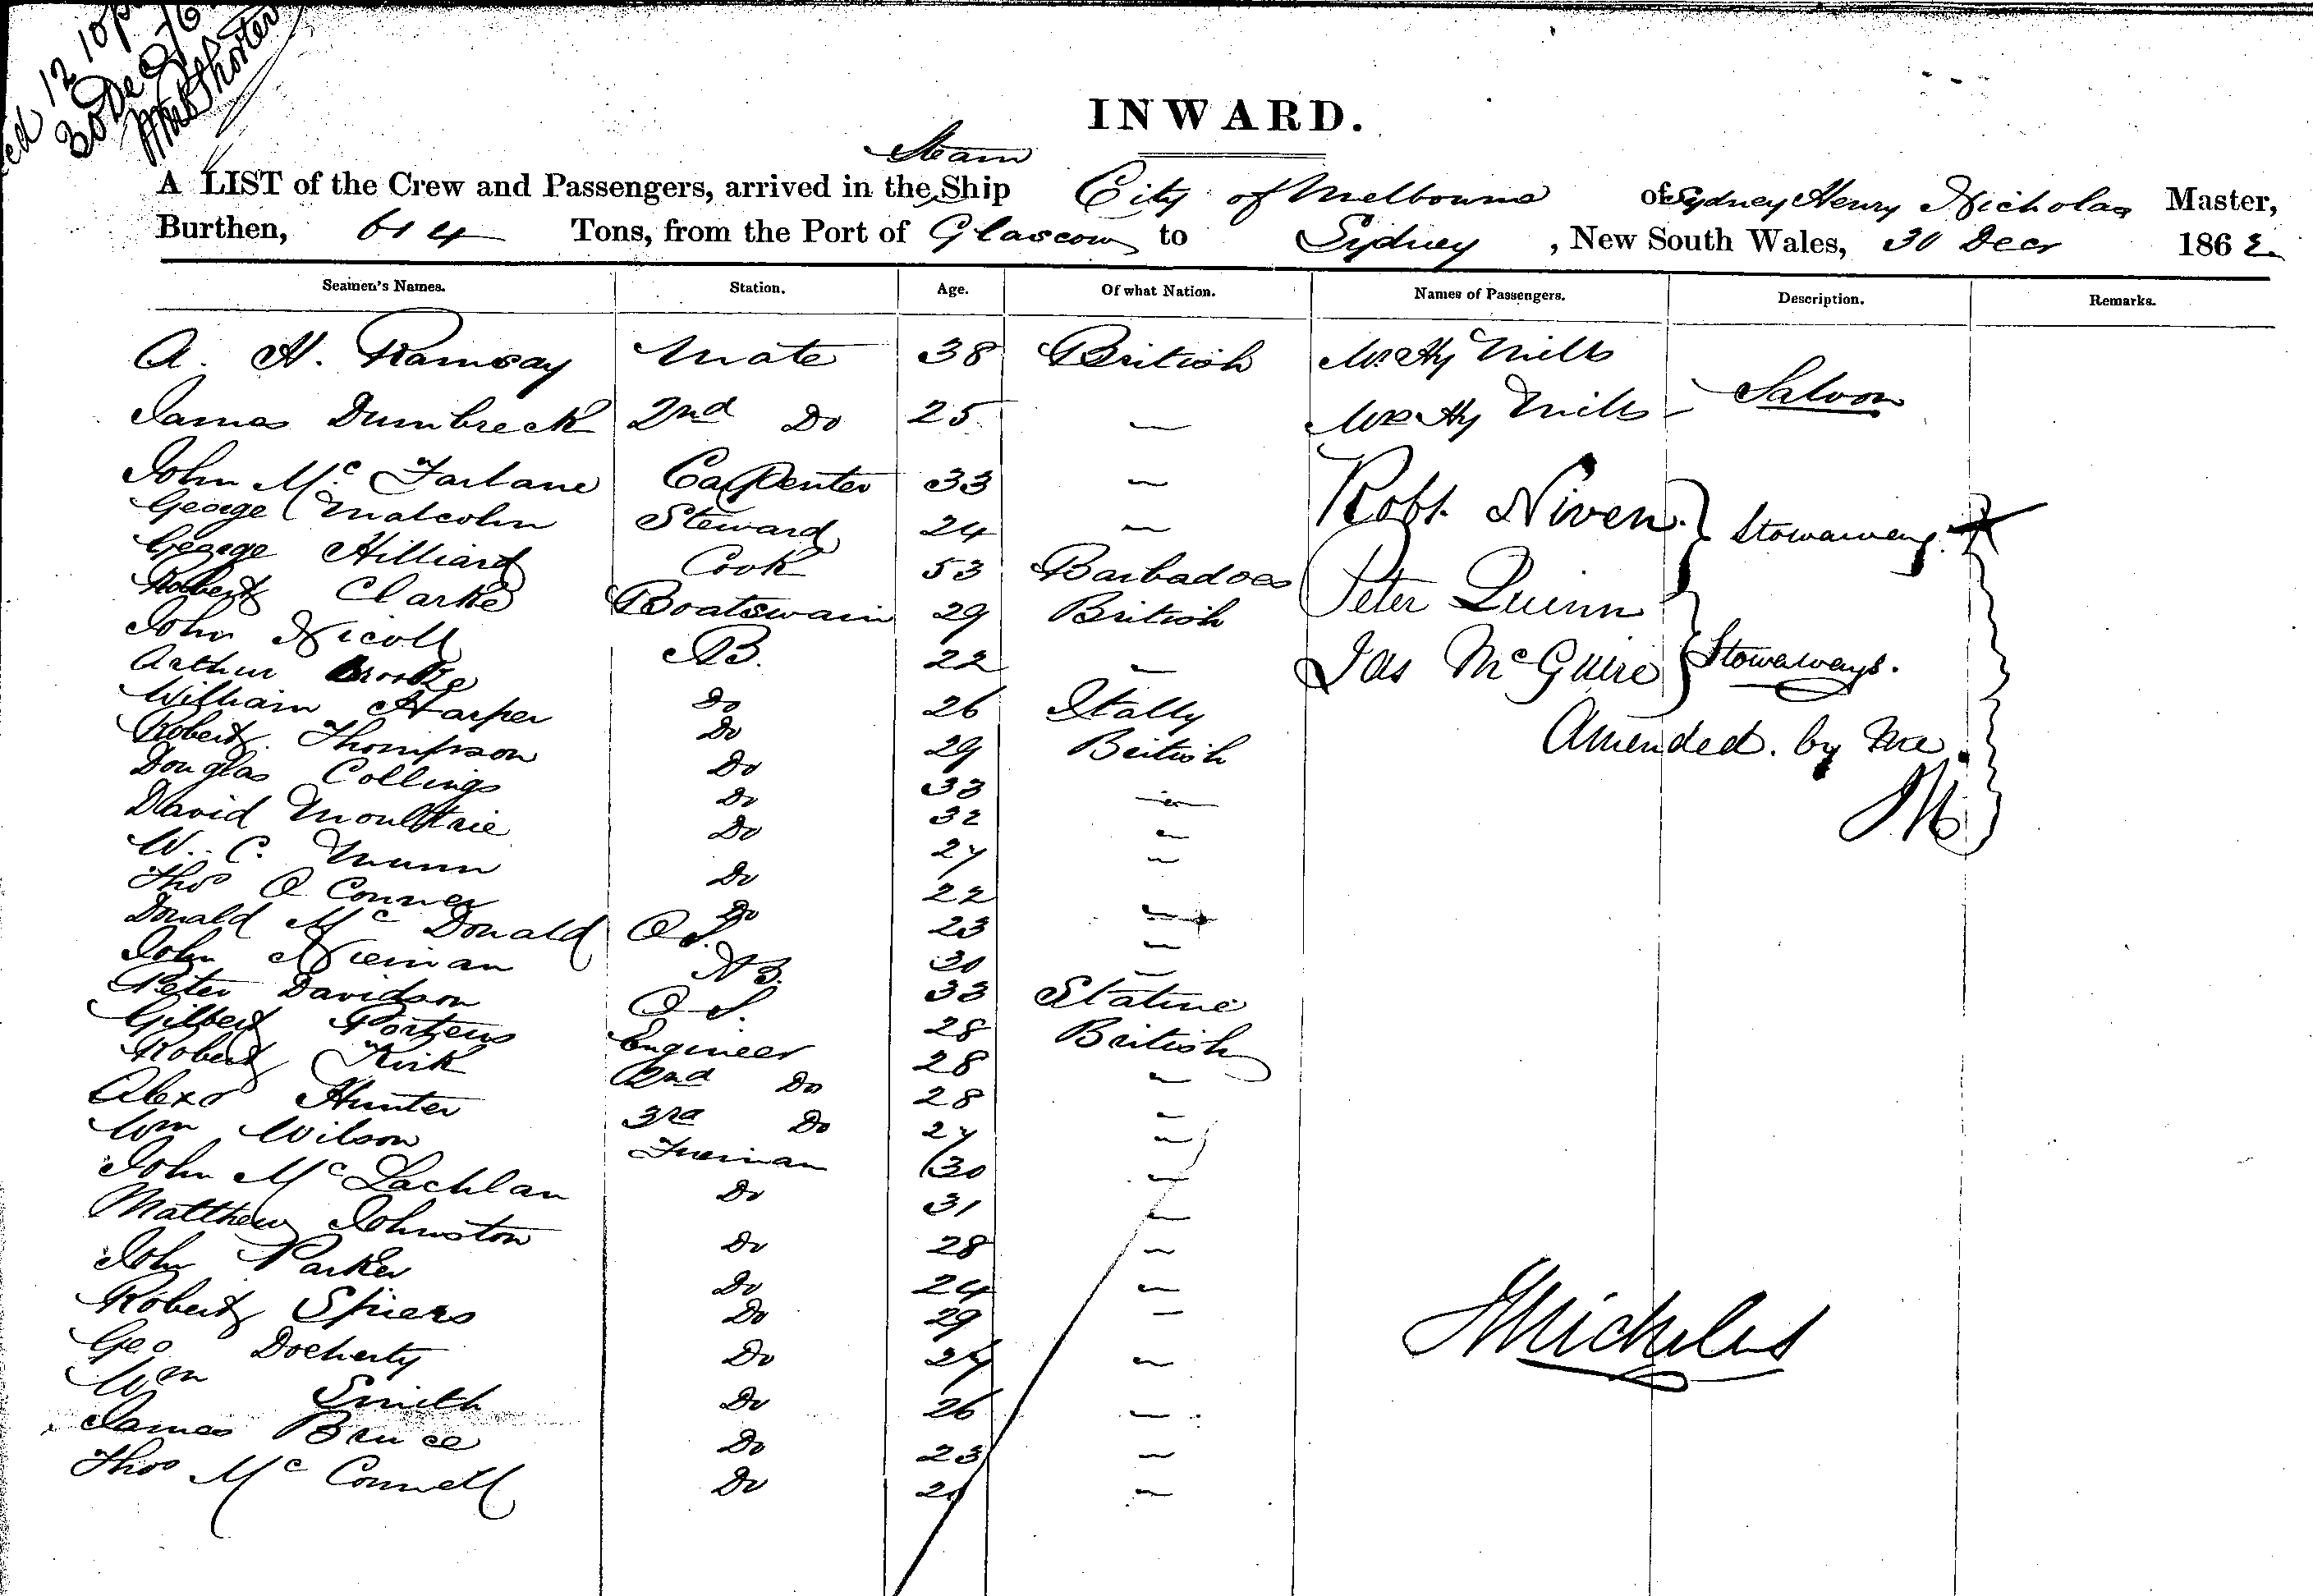 12 10 p
30 Dec
INWARD.
Steam
A LIST of the Crew and Passengers, arrived in the Ship City of Melbourne of Sydney Henry Nicholas Master,
Burthen, 614 Tons, from the Port of Glascow to Sydney, New South Wales, 30 Decr 1862
Seamen's Names. Station. Age. Of what Nation. Names of Passengers. Description. Remarks.
A. H. Ramsay Mate 38 British Mr Hy Mills
James Dumbreck 2nd Do 25 — Mrs Hy Mills — Saloon
John Mc Farlane Carpenter 33 — Robt. Niven. Stowaways.
George Malcolm Steward 24 —
George Hilliard Cook 53 Barbadoes Peter Quinn
Robert Clarke Boatswain 29 British
John Nicoll AB. 22 — Jas McGuire Stowaways.
Arthur Brooke Do 26 Itally
William Harper Do 29 British Amended. by me.
Robert Thompson Do 33 —
Douglas Collings Do 32 —
David Moultrie Do 27 —
W. C. Munn Do 22 —
Thos O Conner Do 23 —
Donald Mc Donald O.S. 30 —
John Nieman AB. 33 Statine
Peter Davidson O.S. 28 British
Gilbert Porteus Engineer 28 —
Robert Kirk 2nd Do 28 —
Alexr Hunter 3rd Do 27 —
Wm Wilson Fireman 30 —
John Mc Lachlan Do 31 —
Matthew Johnston Do 28 —
John Parker Do 24 —
Robert Spiers Do 29 —
Geo Docherty Do 27 —
Wm Smith Do 26 —
James Bruce Do 23 —
Thos Mc Connell Do —
Nicholas